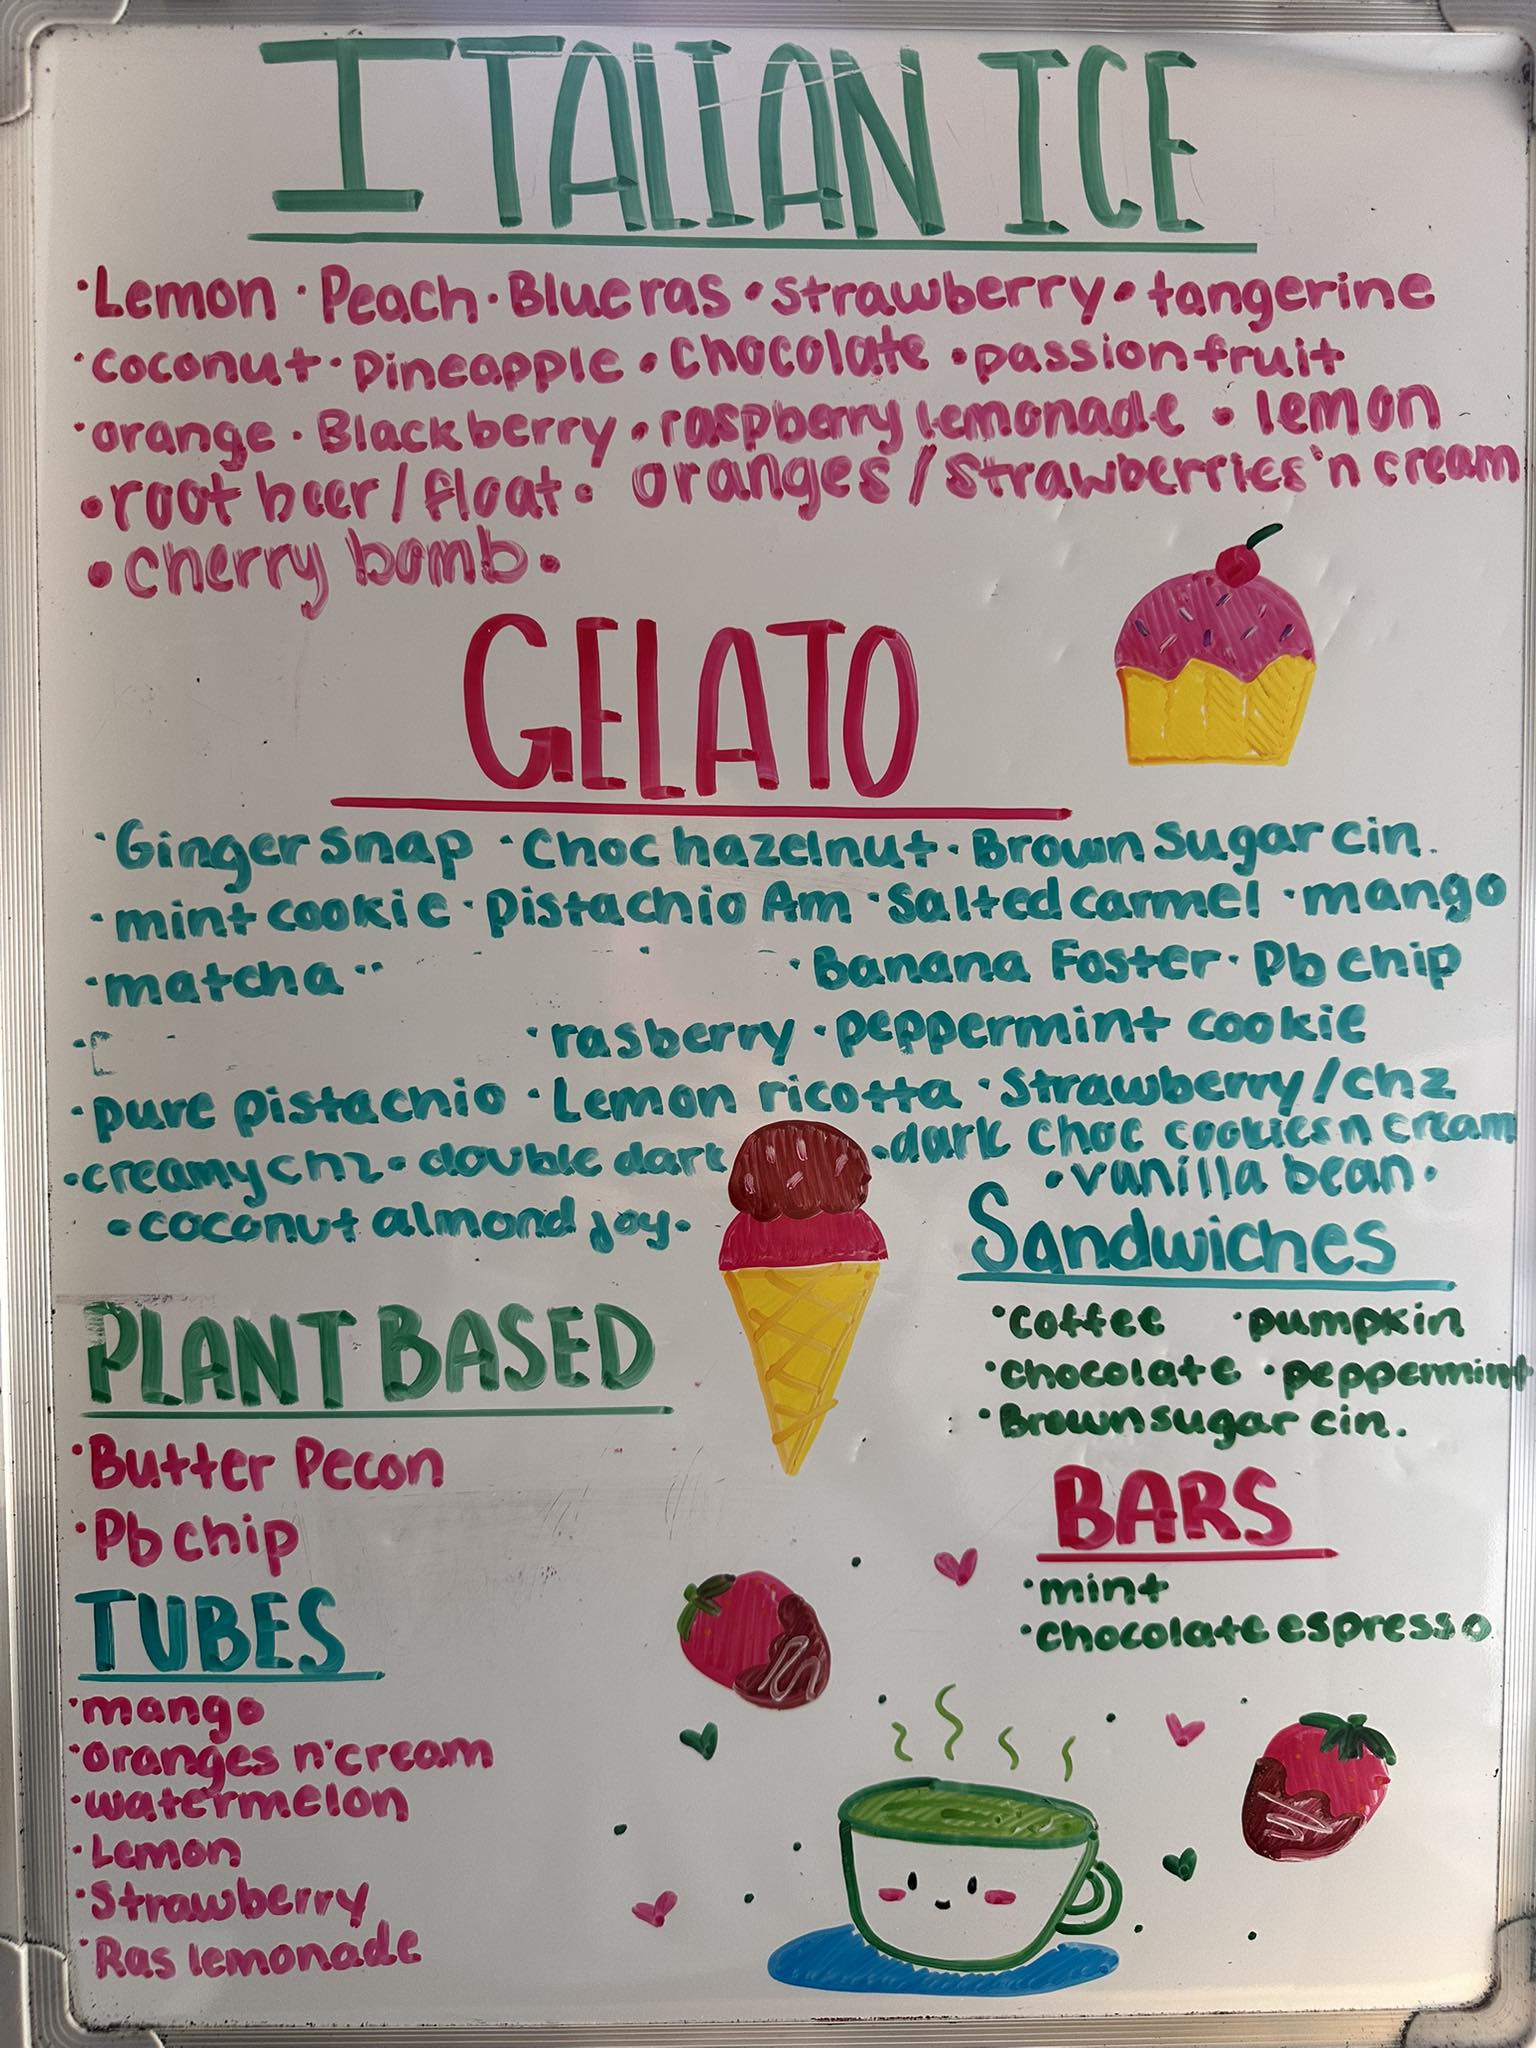 ITALIAN ICE
·Lemon ·Peach ·Blueras ·strawberry ·tangerine
·coconut ·pineapple ·Chocolate ·passion fruit
·orange ·Blackberry ·raspberry lemonade ·lemon
·root beer/float · oranges/Strawberries'n cream
·cherry bomb·
GELATO
·Ginger snap ·Choc hazelnut ·Brown Sugar cin.
·mint cookie ·pistachio Am ·Salted carmel ·mango
·matcha ·Banana Foster ·Pb chip
·rasberry ·peppermint cookie
·pure pistachio ·Lemon ricotta ·Strawberry/chz
·creamy chz ·double dark ·dark choc cookies n cream
·vanilla bean·
·coconut almond joy·
Sandwiches
·coffee ·pumpkin
·chocolate ·peppermint
·Brown sugar cin.
PLANT BASED
·Butter Pecon
·Pb chip
BARS
·mint
·chocolate espresso
TUBES
·mango
·oranges n'cream
·watermelon
·Lemon
·Strawberry
·Ras lemonade